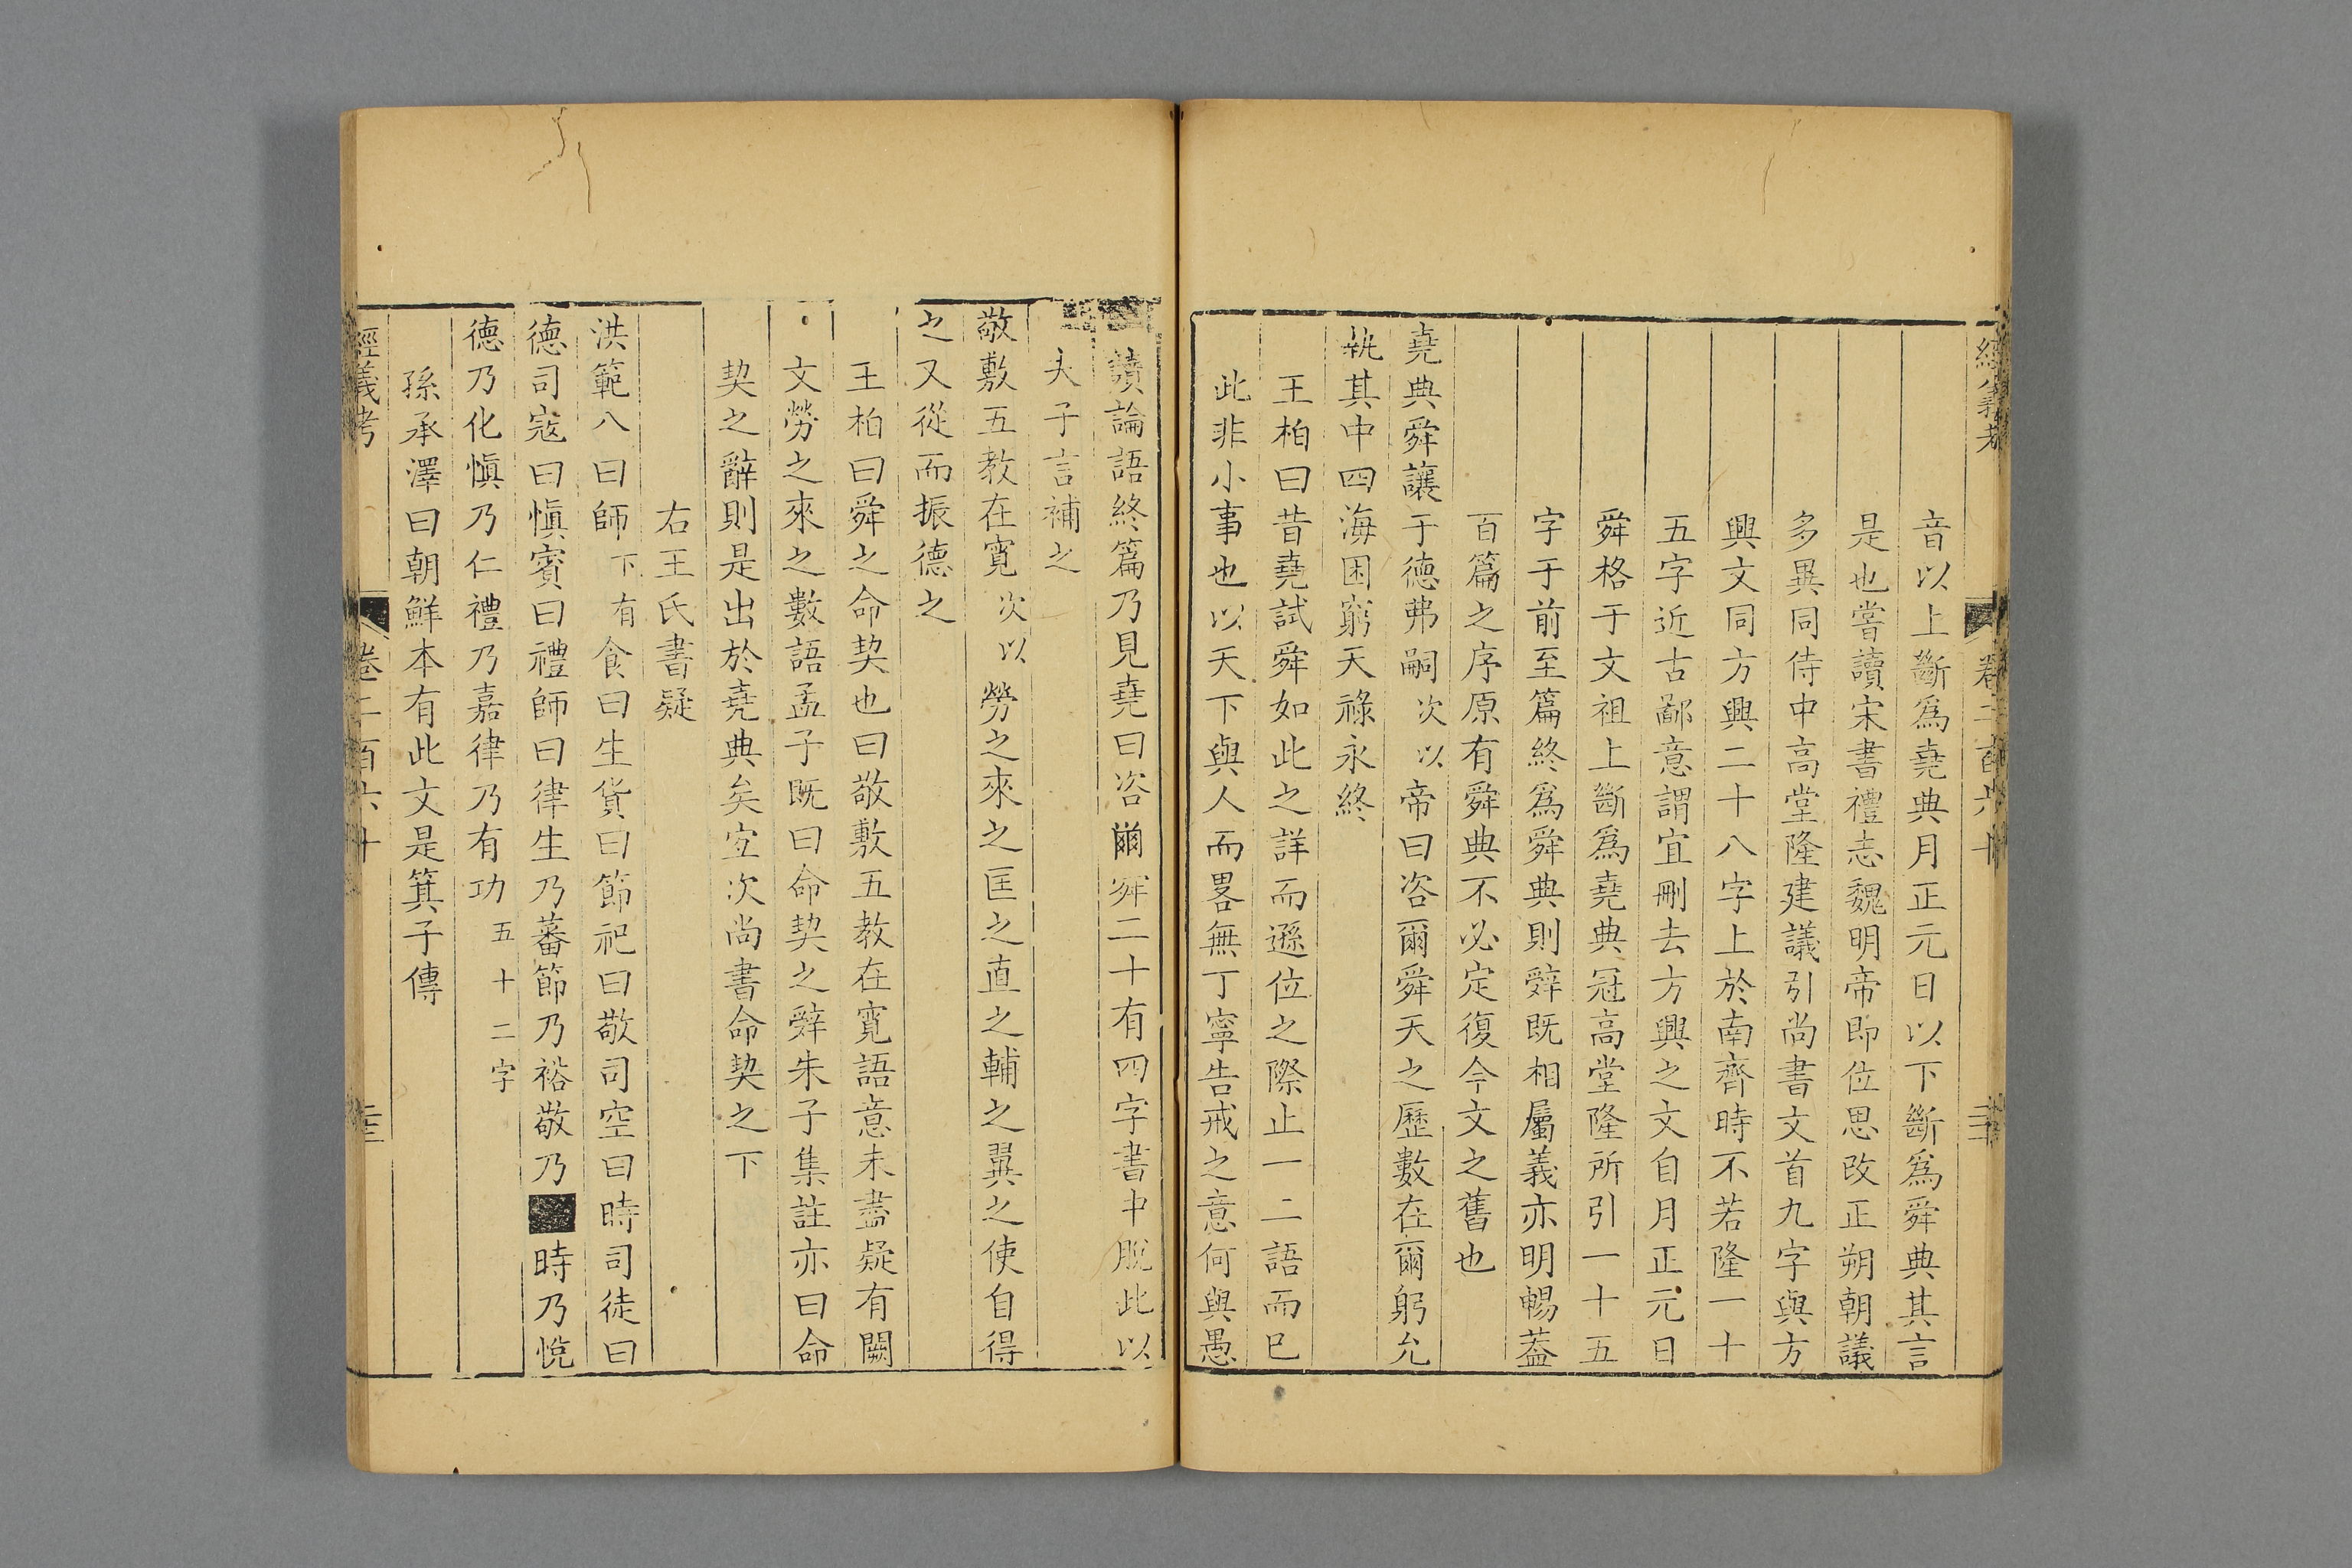 經義考 卷二百六十
音以上斷爲堯典月正元日以下斷爲舜典其言
是也嘗讀宋書禮志魏明帝即位思改正朔朝議
多異同侍中高堂隆建議引尚書文首九字與方
興文同方興二十八字上於南齊時不若隆一十
五字近古鄙意謂宜刪去方興之文自月正元日
舜格于文祖上斷爲堯典冠高堂隆所引一十五
字于前至篇終爲舜典則辭既相屬義亦明暢葢
百篇之序原有舜典不必定復今文之舊也
堯典舜讓于德弗嗣次以帝曰咨爾舜天之歷數在爾躬允
執其中四海困窮天祿永終
王柏曰昔堯試舜如此之詳而遜位之際止一二語而已
此非小事也以天下與人而畧無丁寧告戒之意何與愚
讀論語終篇乃見堯曰咨爾舜二十有四字書中脫此以
夫子言補之
敬敷五教在寬次以勞之來之匡之直之輔之翼之使自得
之又從而振德之
王柏曰舜之命契也曰敬敷五教在寬語意未盡疑有闕
文勞之來之數語孟子既曰命契之辭朱子集註亦曰命
契之辭則是出於堯典矣宜次尚書命契之下
右王氏書疑
洪範八曰師下有食曰生貨曰節祀曰敬司空曰時司徒曰
德司寇曰愼賓曰禮師曰律生乃蕃節乃裕敬乃時乃悅
德乃化愼乃仁禮乃嘉律乃有功五十二字
孫承澤曰朝鮮本有此文是箕子傳
經義考 卷二百六十